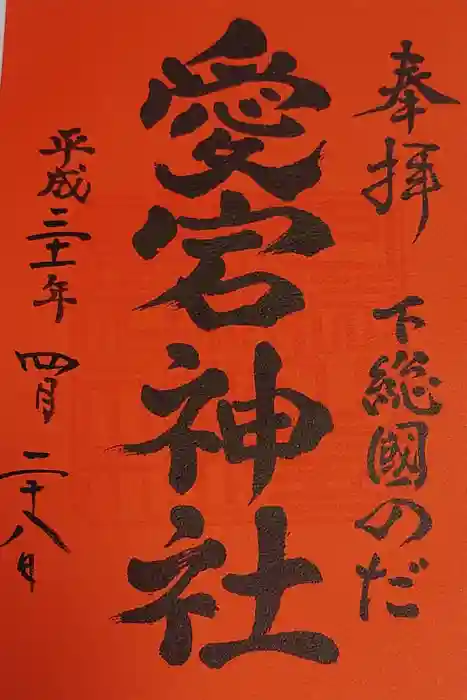 奉拝 下総國のだ
愛宕神社
平成三十一年 四月 二十八日